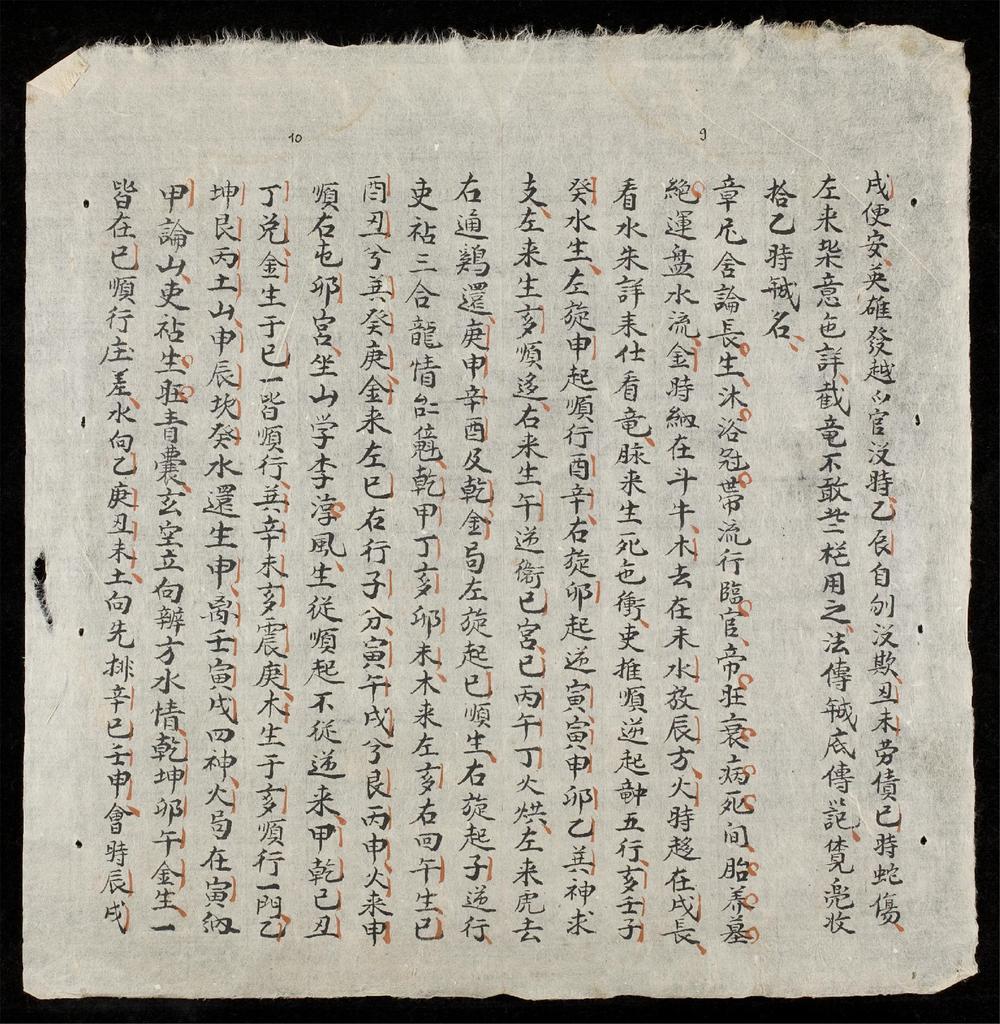 9
戍便安英雄發越官没時乙辰自刎没欺丑未劳債巳時蛇傷
左来柴意色詳截竜不敢芒栏用之法傳鉞底傳記覚亮牧
拾乙時鉞名
章凡舍論長生沐浴冠帶流行臨官帝旺衰病死间胎养墓
絶運盘水流金時納在斗牛木去在未水放辰方火時趍在戍長
看水朱詳耒仕看竜脉来生死色衝吏推順逆起五行亥壬子
癸水生左旋申起順行酉辛右旋卯起逆寅寅申卯乙其神求
支左来生亥順迻右来生午逆衞巳宮巳丙午丁火烘左来虎去
右通鷄還庚申辛酉及乾金局左旋起巳順生右旋起子逆行
吏祜三合龍情乾甲丁亥卯未木来左亥右回午生巳
10
酉丑兮其癸庚金来左巳右行子分寅午戍兮艮丙申火来申
順右屯卯宮坐山学李淳風生従順起不従逆来甲乾已丑
丁兑金生于巳一皆順行其辛未亥震庚木生于亥順行一門乙
坤艮丙土山申辰坎癸水還生申离壬寅戍四神火局在寅納
甲論山吏祜生旺青囊玄空立向辨方水情乾坤卯午金生一
皆在巳順行庄差水向乙庚丑未土向先排辛巳壬申會時辰戍